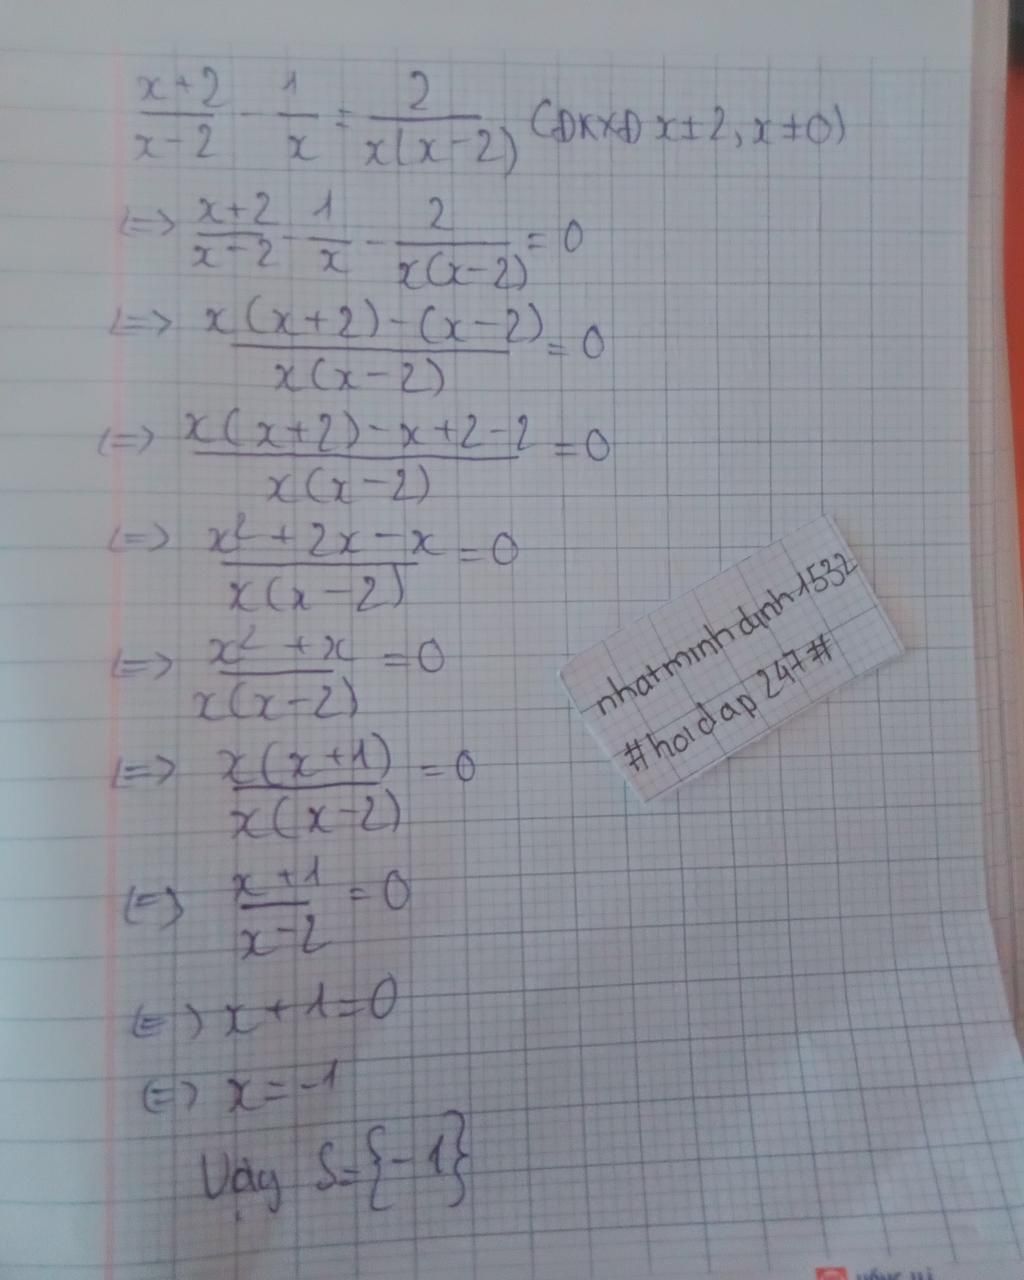 x+2/x-2 - 1/x = 2/x(x-2) (ĐKXĐ x≠2, x≠0)
<=> x+2/x-2 - 1/x - 2/x(x-2) = 0
<=> x(x+2)-(x-2)/x(x-2) = 0
<=> x(x+2)-x+2-2/x(x-2) = 0
<=> x²+2x-x/x(x-2) = 0
<=> x²+x/x(x-2) = 0
<=> x(x+1)/x(x-2) = 0
<=> x+1/x-2 = 0
<=> x+1=0
<=> x=-1
Vậy S={-1}
nhatminhdinh1532
#hoidap247#